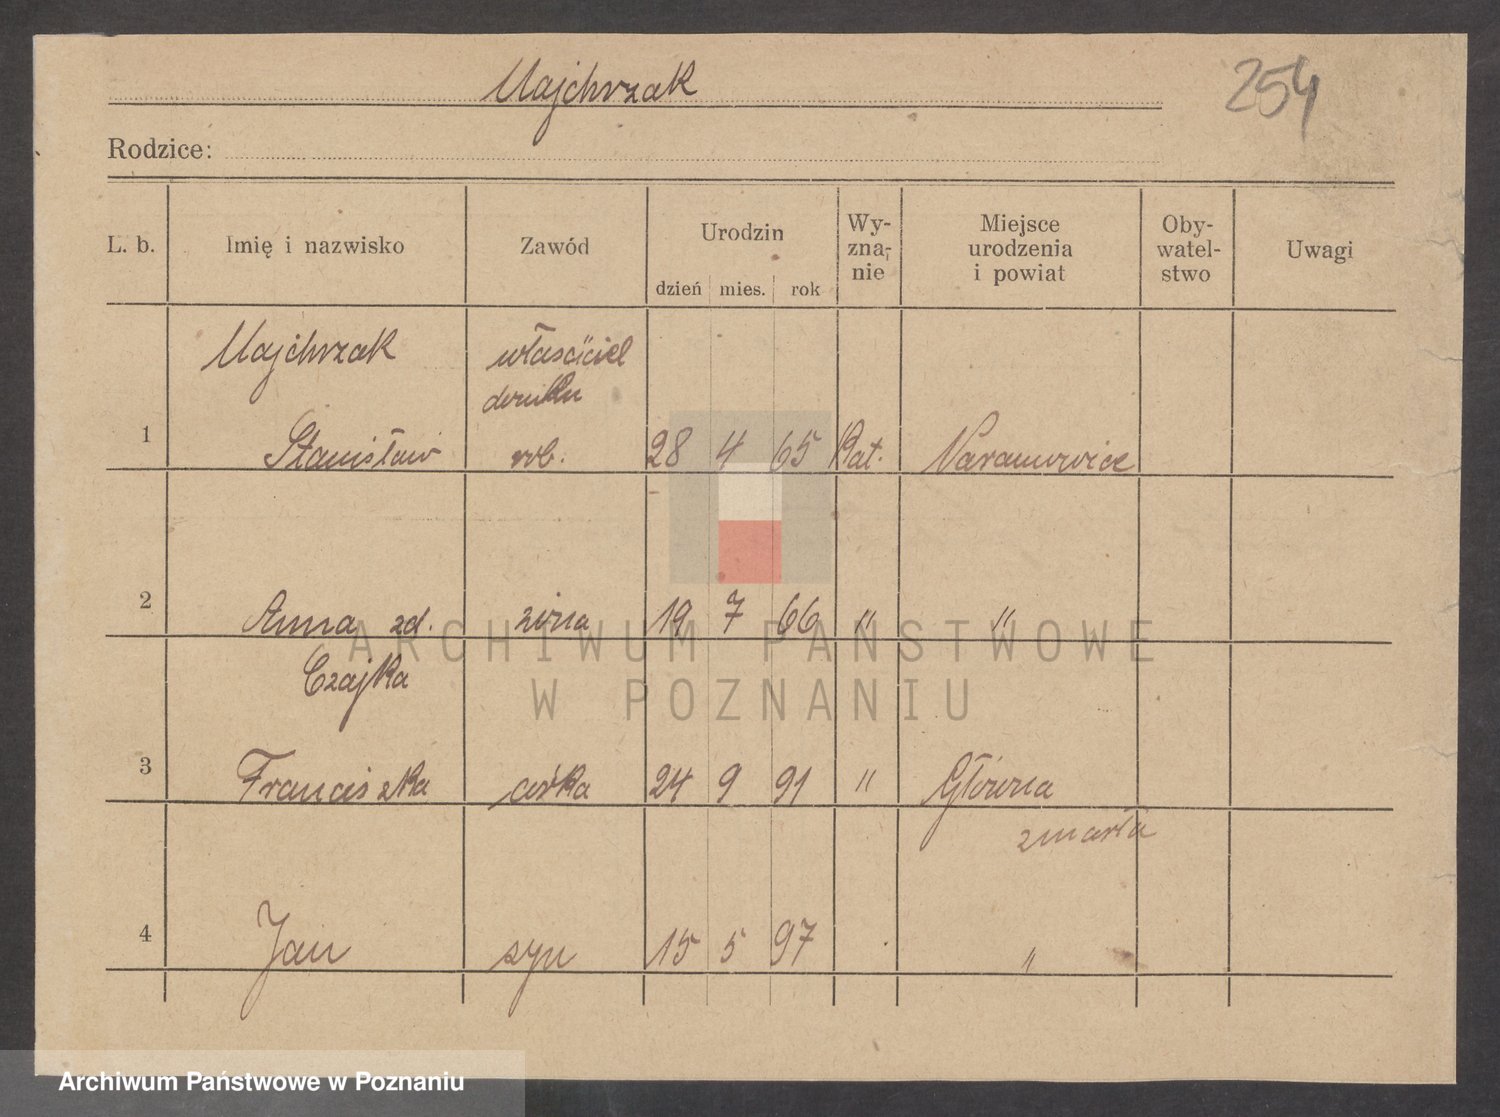 Majchrzak
254
Rodzice:
L. b. Imię i nazwisko Zawód Urodzin dzień mies. rok Wy-zna-nie Miejsce urodzenia i powiat Oby-watel-stwo Uwagi
Majchrzak właściciel
domku
1 Stanisław rob. 28 4 65 Kat.
2 Anna zd. żona 19 7 66 " "
Czajka
3 Franciszka córka 24 9 91 " Główna
zmarła
4 Jan syn 15 5 97 "
ARCHIWUM PAŃSTWOWE
W POZNANIU
Archiwum Państwowe w Poznaniu